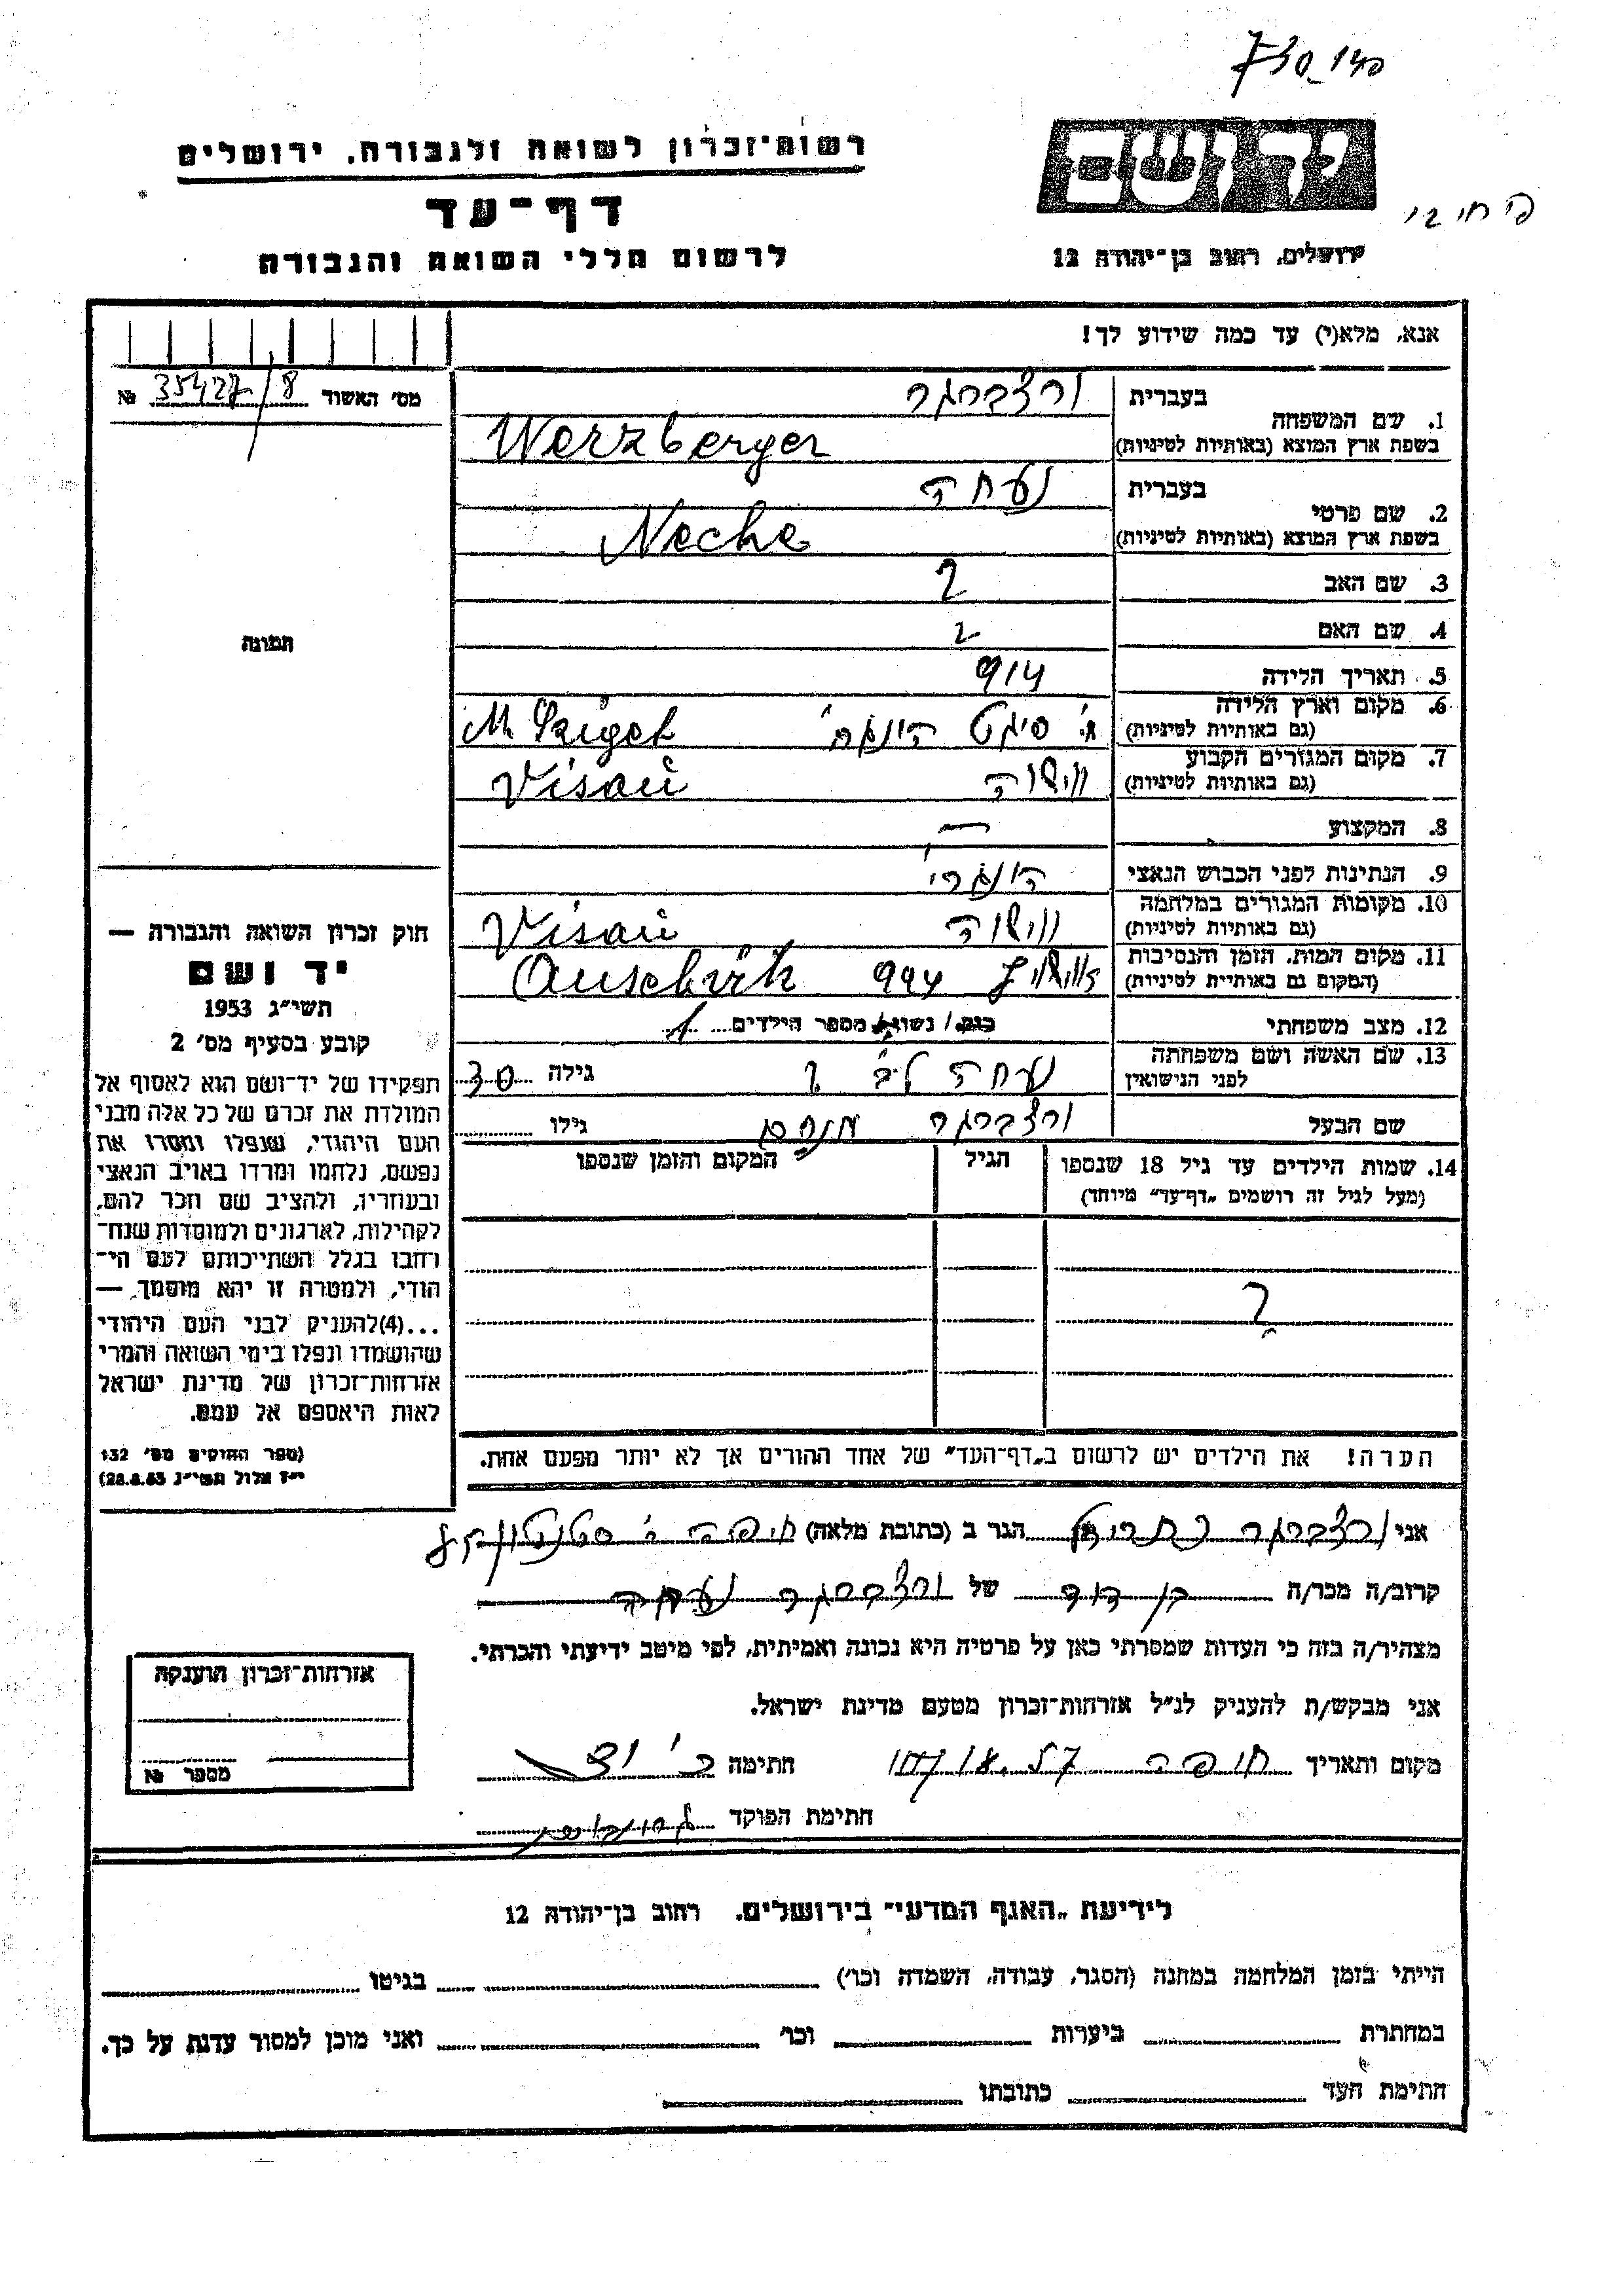 רשות־זכרון לשואה ולגבורה, ירושלים
דף־עד
לרשום חללי השואה והגבורה
יד ושם
ירושלים, רחוב בן־יהודה 12
אנא, מלא(י) עד כמה שידוע לך!
מס׳ האשוד 35427/8 №
1. שם המשפחה
בעברית ורצברגר
בשפת ארץ המוצא (באותיות לטיניות) Werzberger
2. שם פרטי
בעברית נעחה
בשפת ארץ המוצא (באותיות לטיניות) Neche
3. שם האב ?
4. שם האם ?
5. תאריך הלידה 914
6. מקום וארץ הלידה
(גם באותיות לטיניות) מ. סיגט M. Sziget
7. מקום המגורים הקבוע
(גם באותיות לטיניות) ווישוה Visau
8. המקצוע —
9. הנתינות לפני הכבוש הנאצי הונגרי
10. מקומות המגורים במלחמה
(גם באותיות לטיניות) ווישוה Visau
11. מקום המות, הזמן והנסיבות
(המקום גם באותיית לטיניות) 944
12. מצב משפחתי נשוי מספר הילדים 1
13. שם האשה ושם משפחתה
לפני הנישואין נעחה ? גילה 30
שם הבעל ורצברגר מנחם גילו
14. שמות הילדים עד גיל 18 שנספו הגיל המקום והזמן שנספו
(מעל לגיל זה רושמים „דף־עד״ מיוחד)
?
הערה! את הילדים יש לרשום ב„דף־העד״ של אחד ההורים אך לא יותר מפעם אחת.
תמונה
חוק זכרון השואה והגבורה —
יד ושם
תשי״ג 1953
קובע בסעיף מס׳ 2
תפקידו של יד־ושם הוא לאסוף אל
המולדת את זכרם של כל אלה מבני
העם היהודי, שנפלו ומסרו את
נפשם, נלחמו ומרדו באויב הנאצי
ובעוזריו, ולהציב שם וזכר להם,
לקהילות, לארגונים ולמוסדות שנח־
רחבו בגלל השתייכותם לעם הי־
הודי, ולמטרה זו יהא מוסמך, —
...(4)להעניק לבני העם היהודי
שהושמדו ונפלו בימי השואה והמרי
אזרחות־זכרון של מדינת ישראל
לאות היאספם אל עמם.
(ספר החוקים מס׳ 132
י״ז אלול תשי״ג 28.8.53)
אני ורצברגר הגר ב (כתובת מלאה) חיפה
קרוב/ה מכר/ה בן דוד של ורצברגר נעחה
מצהיר/ה בזה כי העדות שמסרתי כאן על פרטיה היא נכונה ואמיתית, לפי מיטב ידיעתי והכרתי.
אני מבקש/ת להעניק לנ״ל אזרחות־זכרון מטעם מדינת ישראל.
מקום ותאריך חיפה חתימה
חתימת הפוקד
אזרחות־זכרון הוענקה
מספר №
לידיעת „האגף המדעי״ בירושלים, רחוב בן־יהודה 12
הייתי בזמן המלחמה במחנה (הסגר, עבודה, השמדה וכו׳) בגיטו
במחתרת ביערות וכו׳ ואני מוכן למסור עדות על כך.
חתימת העד כתובתו